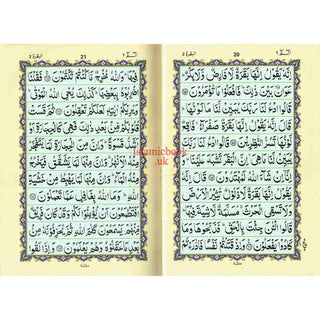 البقرة ٢
20
الٓمّٓ ١
اِنَّهٗ يَقُوْلُ اِنَّهَا بَقَرَةٌ لَّا فَارِضٌ وَّلَا بِكْرٌ
عَوَانٌۢ بَيْنَ ذٰلِكَ فَافْعَلُوْا مَا تُؤْمَرُوْنَ
قَالُوا ادْعُ لَنَا رَبَّكَ يُبَيِّنْ لَّنَا مَا لَوْنُهَا قَالَ
اِنَّهٗ يَقُوْلُ اِنَّهَا بَقَرَةٌ صَفْرَآءُ فَاقِعٌ
لَّوْنُهَا تَسُرُّ النّٰظِرِيْنَ قَالُوا ادْعُ لَنَا
رَبَّكَ يُبَيِّنْ لَّنَا مَا هِيَ اِنَّ الْبَقَرَ تَشٰبَهَ عَلَيْنَا
وَاِنَّآ اِنْ شَآءَ اللّٰهُ لَمُهْتَدُوْنَ قَالَ
اِنَّهٗ يَقُوْلُ اِنَّهَا بَقَرَةٌ لَّا ذَلُوْلٌ تُثِيْرُ الْاَرْضَ
وَلَا تَسْقِي الْحَرْثَ مُسَلَّمَةٌ لَّا شِيَةَ فِيْهَا
قَالُوا الْـٰٔنَ جِئْتَ بِالْحَقِّ فَذَبَحُوْهَا وَمَا
كَادُوْا يَفْعَلُوْنَ وَاِذْ قَتَلْتُمْ نَفْسًا فَادّٰرَءْتُمْ
البقرة ٢
21
الٓمّٓ ١
فِيْهَا وَاللّٰهُ مُخْرِجٌ مَّا كُنْتُمْ تَكْتُمُوْنَ فَقُلْنَا
اضْرِبُوْهُ بِبَعْضِهَا كَذٰلِكَ يُحْيِ اللّٰهُ الْمَوْتٰى
وَيُرِيْكُمْ اٰيٰتِهٖ لَعَلَّكُمْ تَعْقِلُوْنَ ثُمَّ قَسَتْ
قُلُوْبُكُمْ مِّنْۢ بَعْدِ ذٰلِكَ فَهِيَ كَالْحِجَارَةِ اَوْ
اَشَدُّ قَسْوَةً وَاِنَّ مِنَ الْحِجَارَةِ لَمَا يَتَفَجَّرُ
مِنْهُ الْاَنْهٰرُ وَاِنَّ مِنْهَا لَمَا يَشَّقَّقُ فَيَخْرُجُ
مِنْهُ الْمَآءُ وَاِنَّ مِنْهَا لَمَا يَهْبِطُ مِنْ خَشْيَةِ
اللّٰهِ وَمَا اللّٰهُ بِغَافِلٍ عَمَّا تَعْمَلُوْنَ
اَفَتَطْمَعُوْنَ اَنْ يُّؤْمِنُوْا لَكُمْ وَقَدْ كَانَ فَرِيْقٌ
مِّنْهُمْ يَسْمَعُوْنَ كَلٰمَ اللّٰهِ ثُمَّ يُحَرِّفُوْنَهٗ مِنْۢ
بَعْدِ مَا عَقَلُوْهُ وَهُمْ يَعْلَمُوْنَ وَاِذَا لَقُوا
Islamicbook
.uk